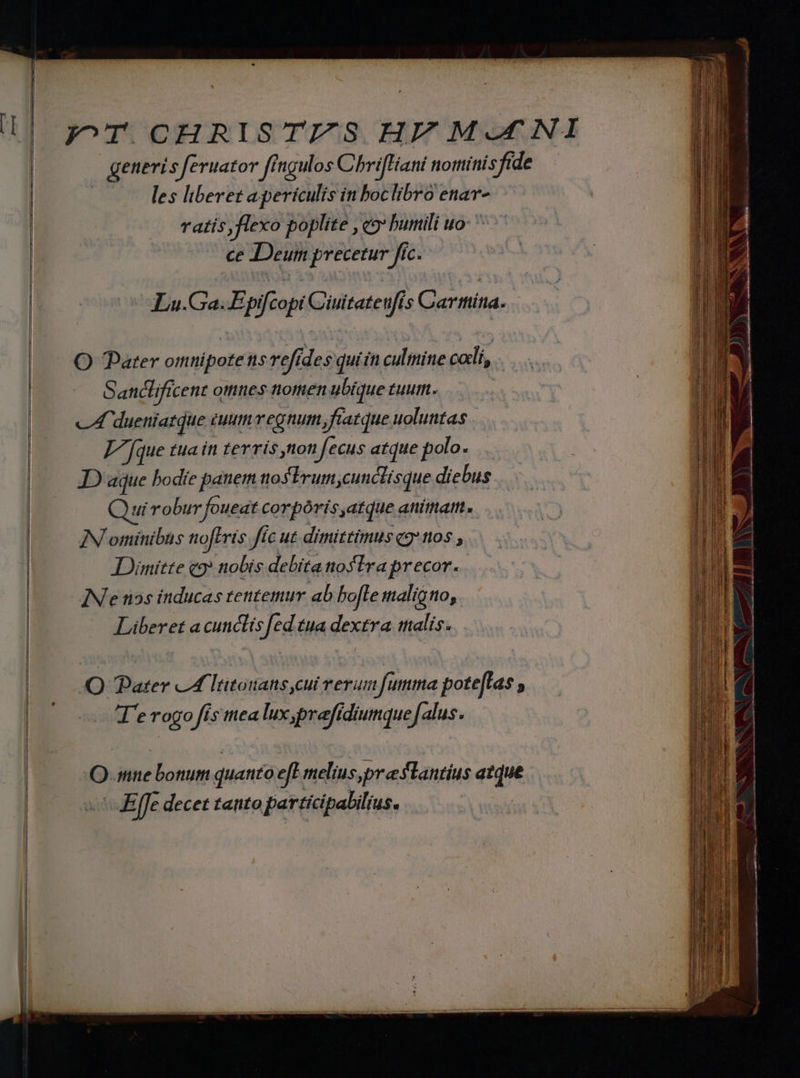 VT CHRISTVS HVMANI
generis seruator singulos Christiani nominis fide
les liberet a periculis in hoc libro enar-
ratis, flexo poplite, & humili uo
ce Deum precetur sic.
Lu.Ga.Episcopi Ciuitatensis Carmina.
O Pater omnipotens resides qui in culmine cœli,
Sanctificent omnes nomen ubique tuum.
Adueniatque tuum regnum, fiatque uoluntas
Vsque tua in terris, non secus atque polo.
Daque hodie panem nostrum, cunctisque diebus
Qui robur foueat corpóris, atque animam.
Nominibus nostris sic ut dimittimus & nos,
Dimitte & nobis debita nostra precor.
Ne nos inducas tentemur ab hoste maligno,
Liberet a cunctis sed tua dextra malis.
O Pater Altitonans, cui rerum summa potestas,
Te rogo sis mea lux, præsidiumque salus.
Omne bonum quanto est melius, præstantius atque
Esse decet tanto participabilius.